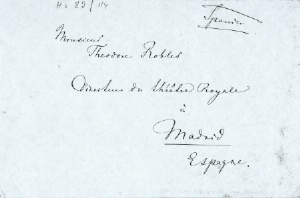 Hs 89/114
Spanien
Monsieur
Theodore Robles
Directeur du théâtre Royale
à
Madrid
Espagne.